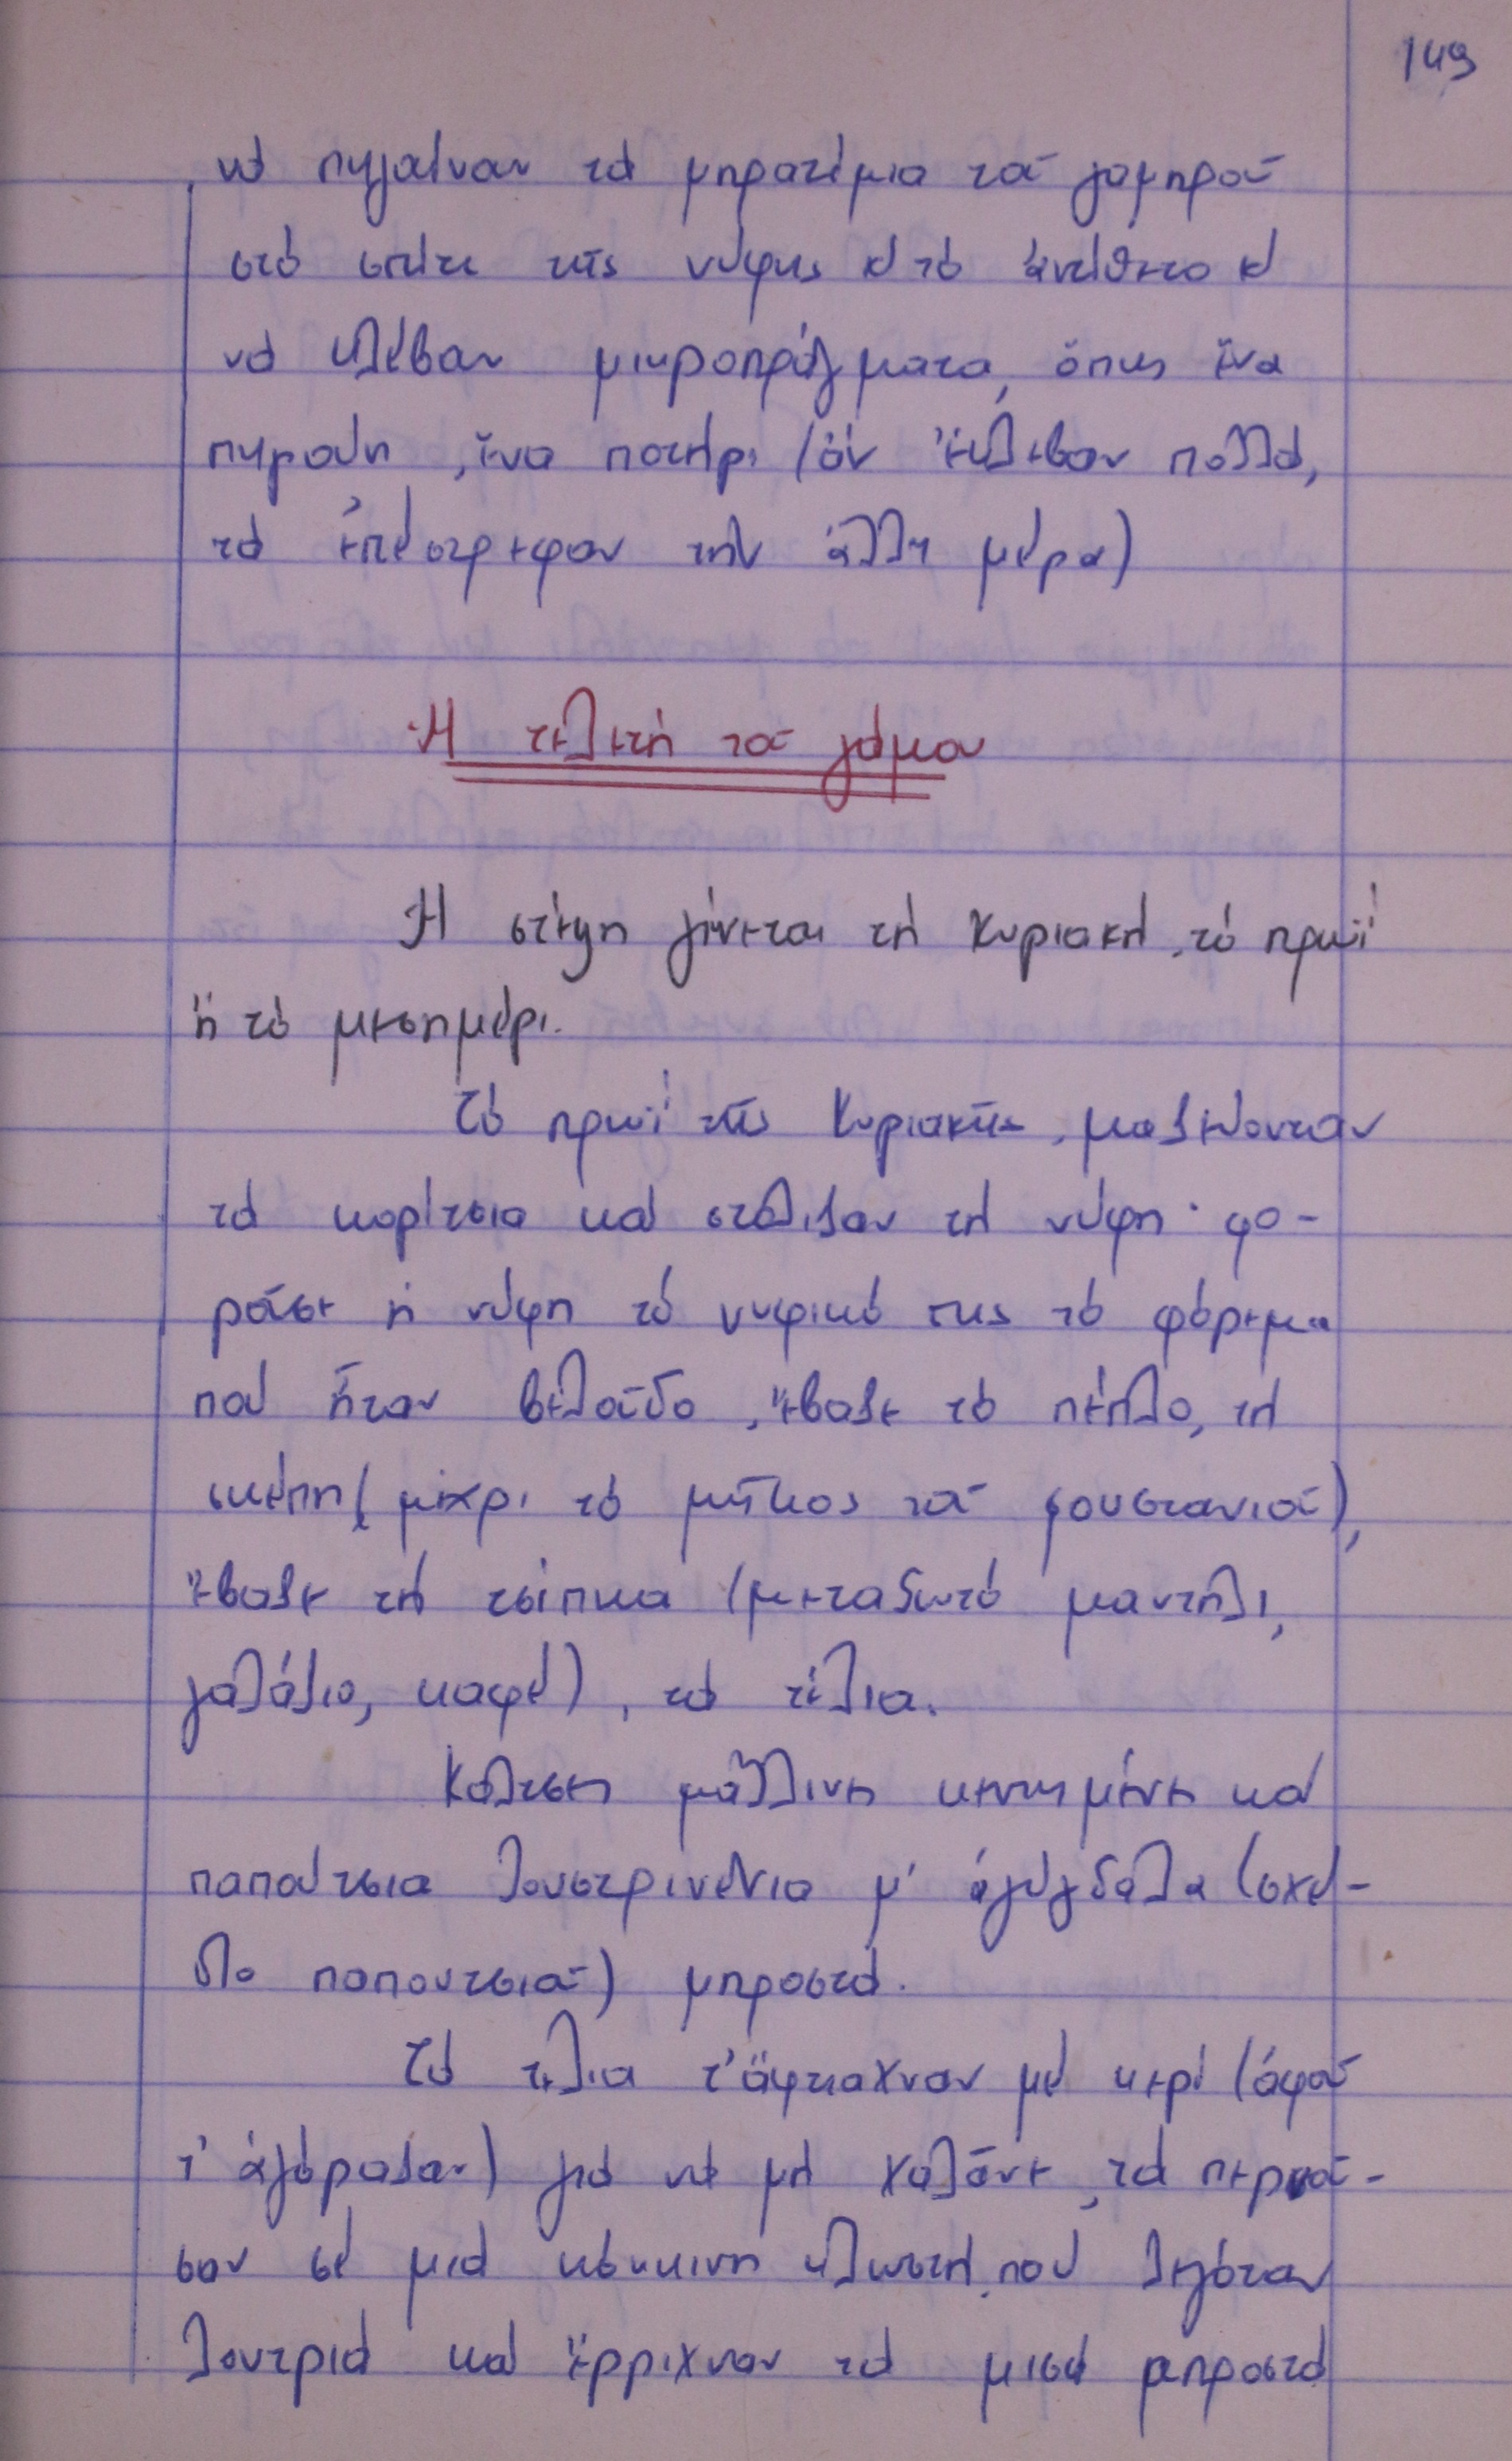 149
νά πηγαίναν τά μπρατίμια τοῦ γαμπροῦ
στό σπίτι τῆς νύφης κ τό ἀντίθετο κ
νά κλέβαν μικροπράγματα, ὅπως ἕνα
πηρούνι, ἕνα ποτήρι (ἄν ἔκλεβαν πολλά,
τά ἐπέστρεφαν τήν ἄλλη μέρα)
Ἡ τελετή τοῦ γάμου
Ἡ στέψη γίνεται τή Κυριακή, τό πρωΐ
ἤ τό μεσημέρι.
Τό πρωΐ τῆς Κυριακῆς, μαζεύονταν
τά κορίτσια καί στόλιζαν τή νύφη· φο-
ροῦσε ἡ νύφη τό νυφικό της τό φόρεμα
πού ἦταν βελοῦδο, ἔβαζε τό πέπλο, τή
σκέπη (μέχρι τό μῆκος τοῦ φουστανιοῦ),
ἔβαζε τή τσίπκα (μεταξωτό μαντήλι,
γαλάζιο, καφέ), τά τέλια.
Κάλτσες μάλλινες κεντημένες καί
παπούτσια λουστρινένια μ' ἀμύγδαλα (σχέ-
διο παπουτσιοῦ) μπροστά.
Τά τέλια τ' ἄφτιαχναν μέ κερί (ἀφοῦ
τ' ἀγόραζαν) γιά νά μή χαλᾶνε, τά περνοῦ-
σαν σέ μιά κόκκινη κλωστή, πού λεγόταν
λουτριά καί ἔρριχναν τά μισά μπροστά